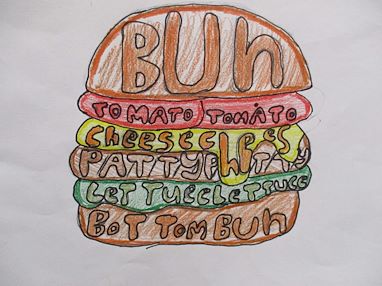 BUn
TOMATO TOMATO
CheeseCheeS
PATTYPATTY
LETTUCELETTUCE
BOTTOM BUn